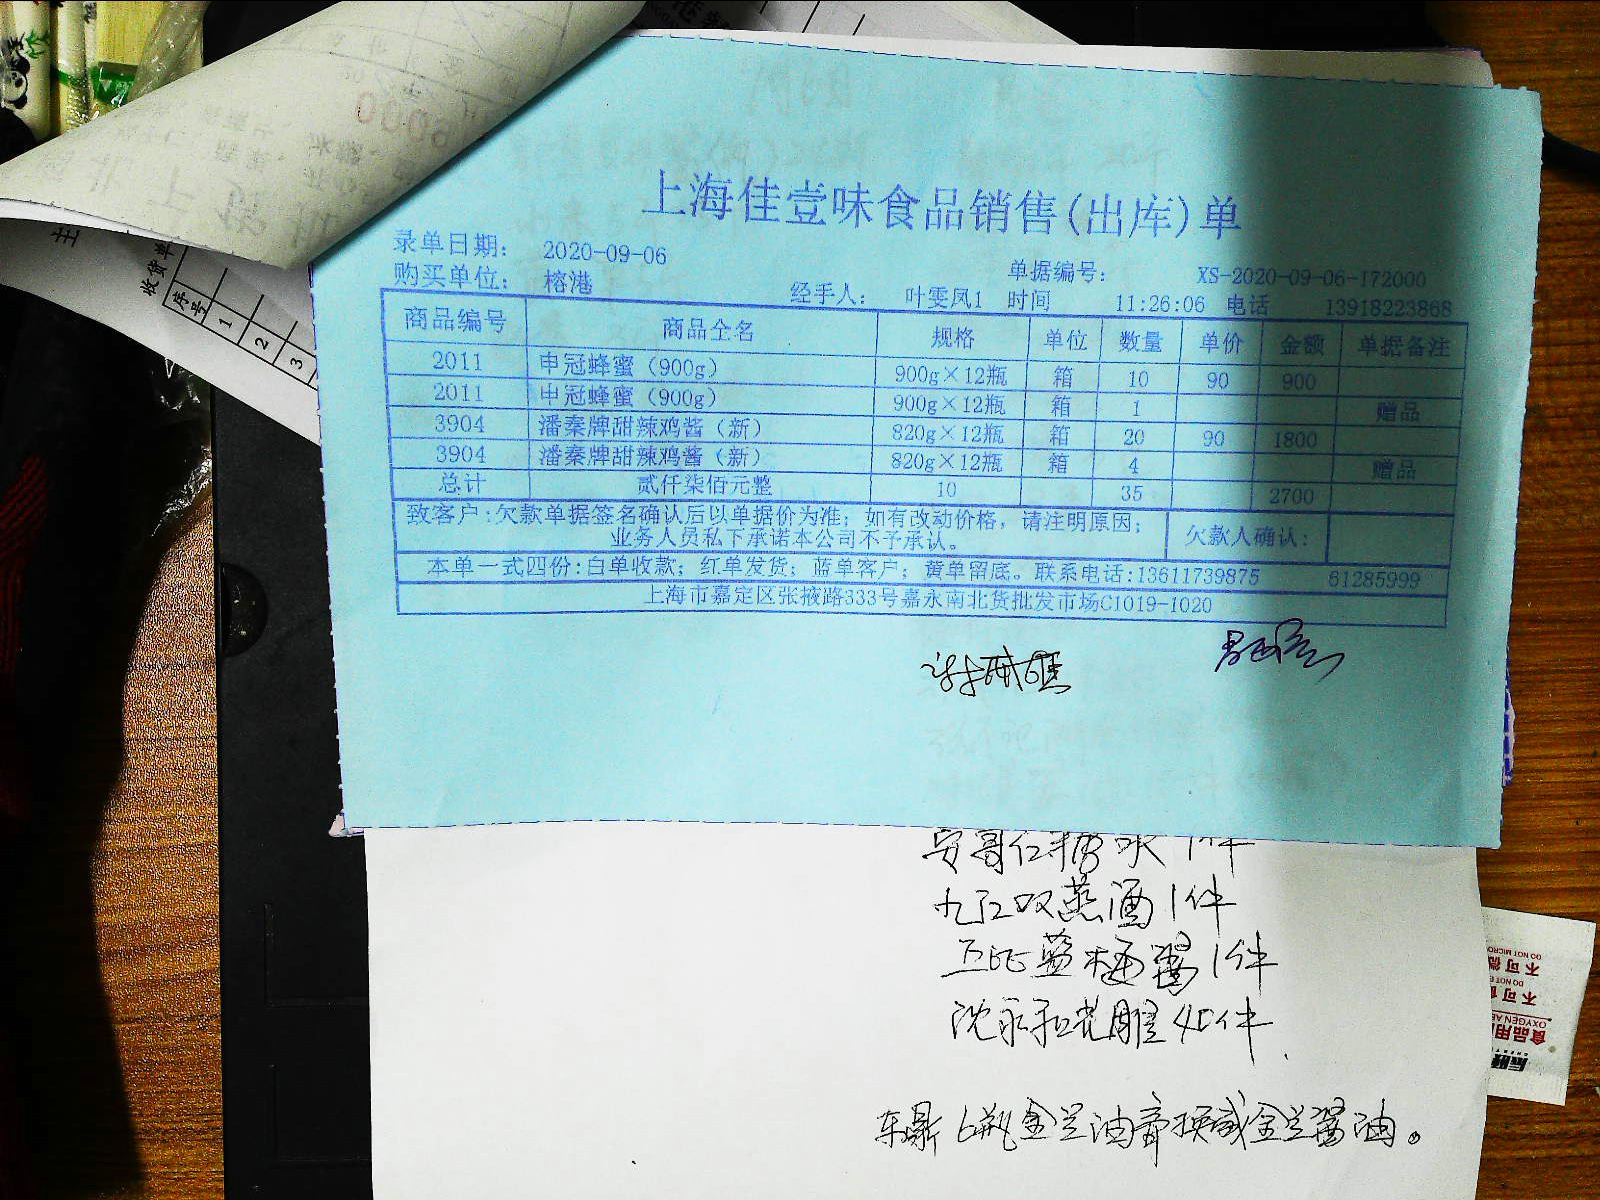 上海佳壹味食品销售(出库)单
录单日期: 2020-09-06
单据编号: XS-2020-09-06-172000
购买单位: 榕港 经手人: 叶雯凤1 时间 11:26:06 电话 13918223868
商品编号 商品全名 规格 单位 数量 单价 金额 单据备注
2011 申冠蜂蜜(900g) 900g×12瓶 箱 10 90 900
2011 申冠蜂蜜(900g) 900g×12瓶 箱 1 赠品
3904 潘秦牌甜辣鸡酱(新) 820g×12瓶 箱 20 90 1800
3904 潘秦牌甜辣鸡酱(新) 820g×12瓶 箱 4 赠品
总计 贰仟柒佰元整 10 35 2700
致客户:欠款单据签名确认后以单据价为准; 如有改动价格, 请注明原因;
业务人员私下承诺本公司不予承认。
欠款人确认:
本单一式四份:白单收款; 红单发货; 蓝单客户; 黄单留底。联系电话:13611739875 61285999
上海市嘉定区张掖路333号嘉永南北货批发市场C1019-1020
九江双蒸酒1件
沈永和花雕45件
6瓶金兰油膏换成金兰酱油。
收货单
序号
1
2
3
食品用
不可
不可微
DO NOT MICRO